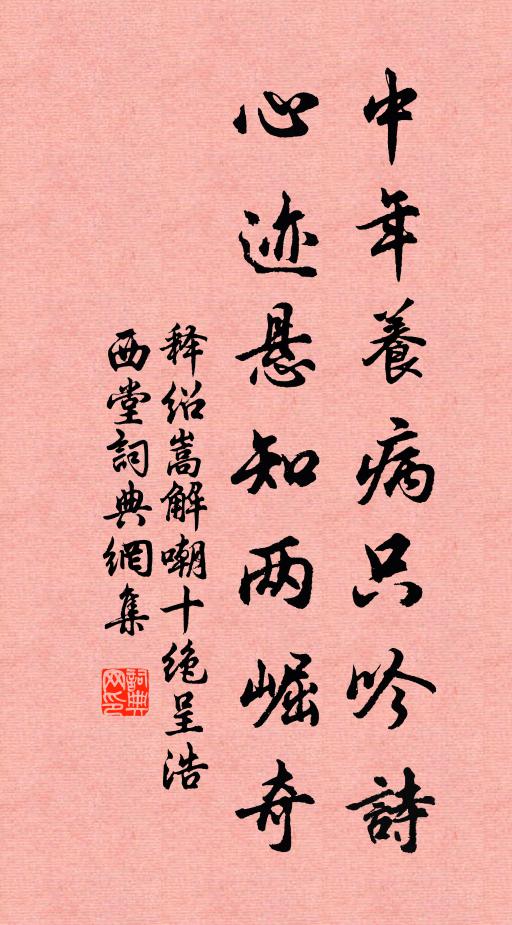 中年養病只吟詩
心迹悬知两崛奇
释绍嵩解嘲十绝呈浩
西堂詞典網集
詞典網印